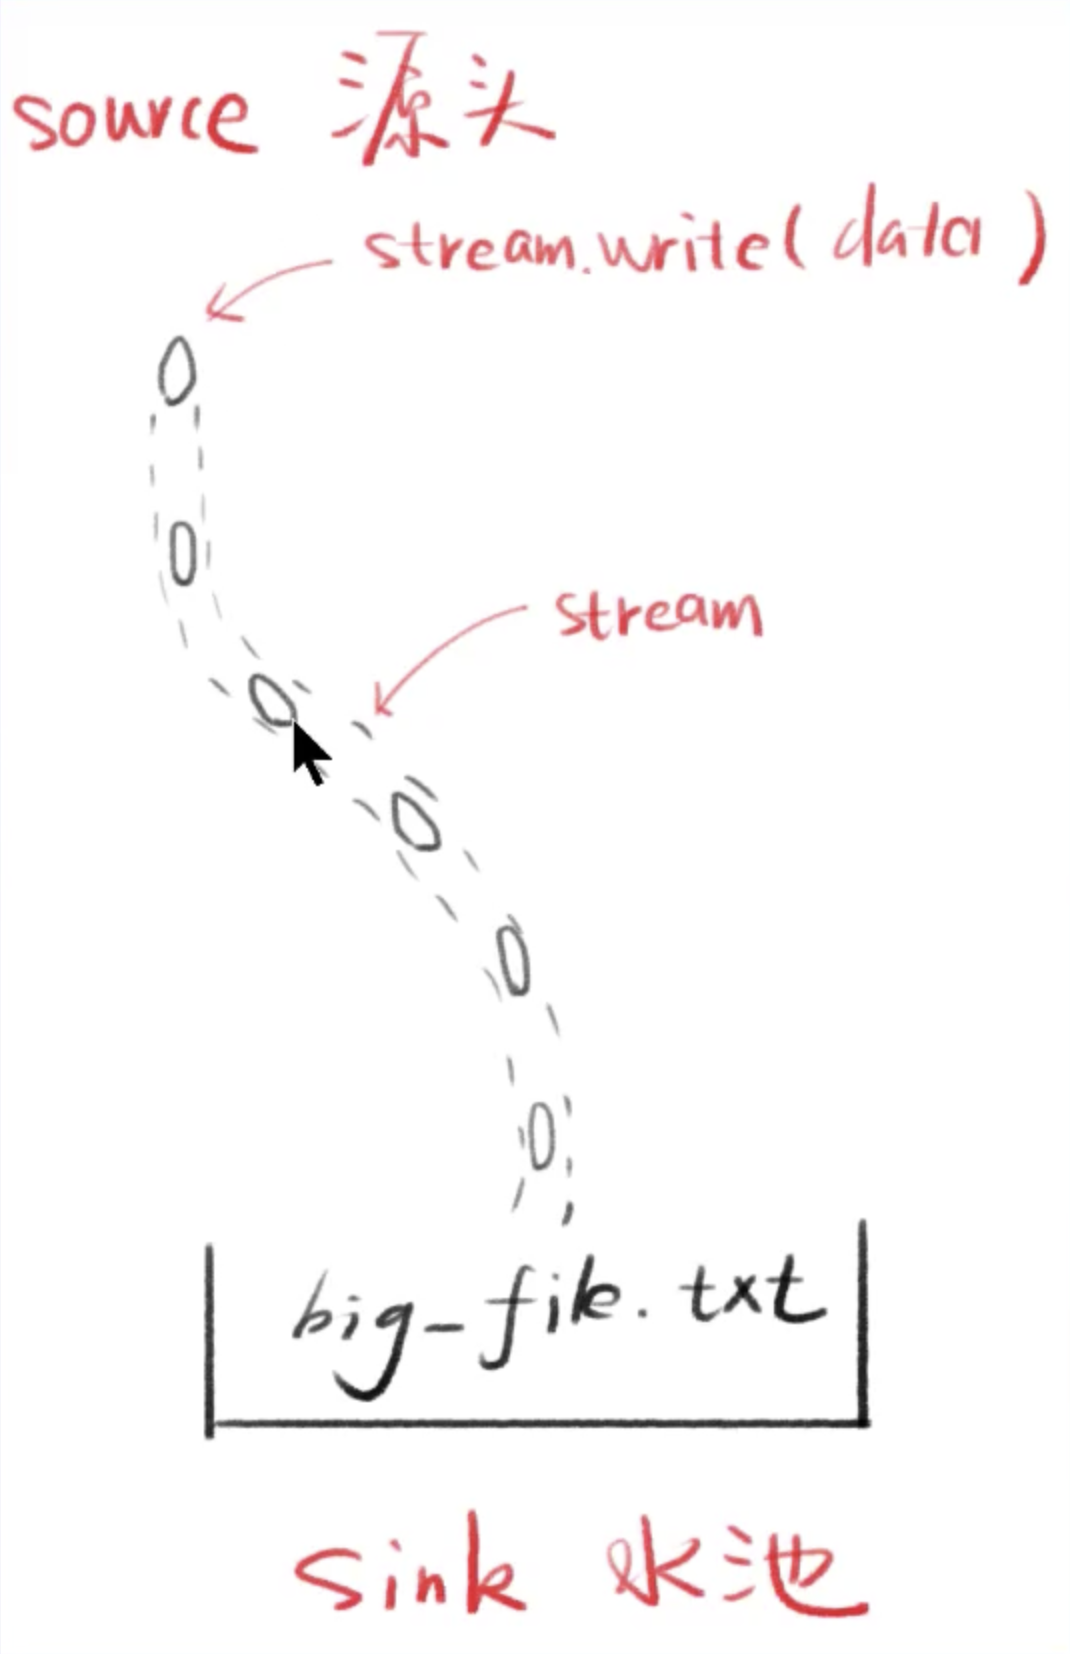 source 源头
stream.write( data )
stream
big-file.txt
Sink 水池